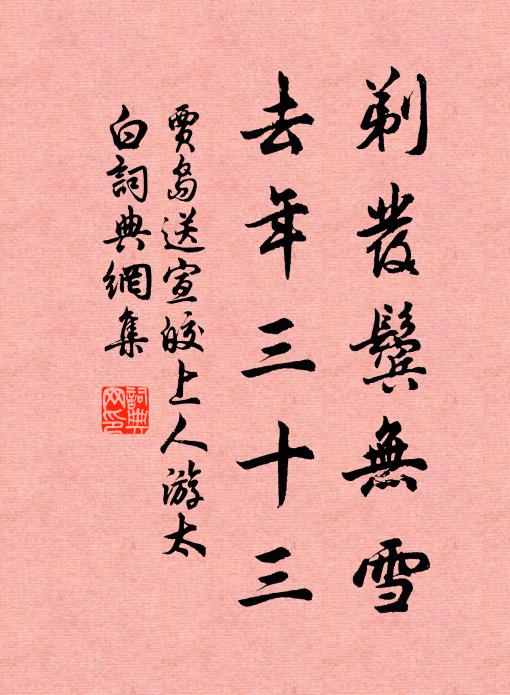 剃發鬓無雪
去年三十三
賈島送宣皎上人游太
白詞典網集
詞典網印